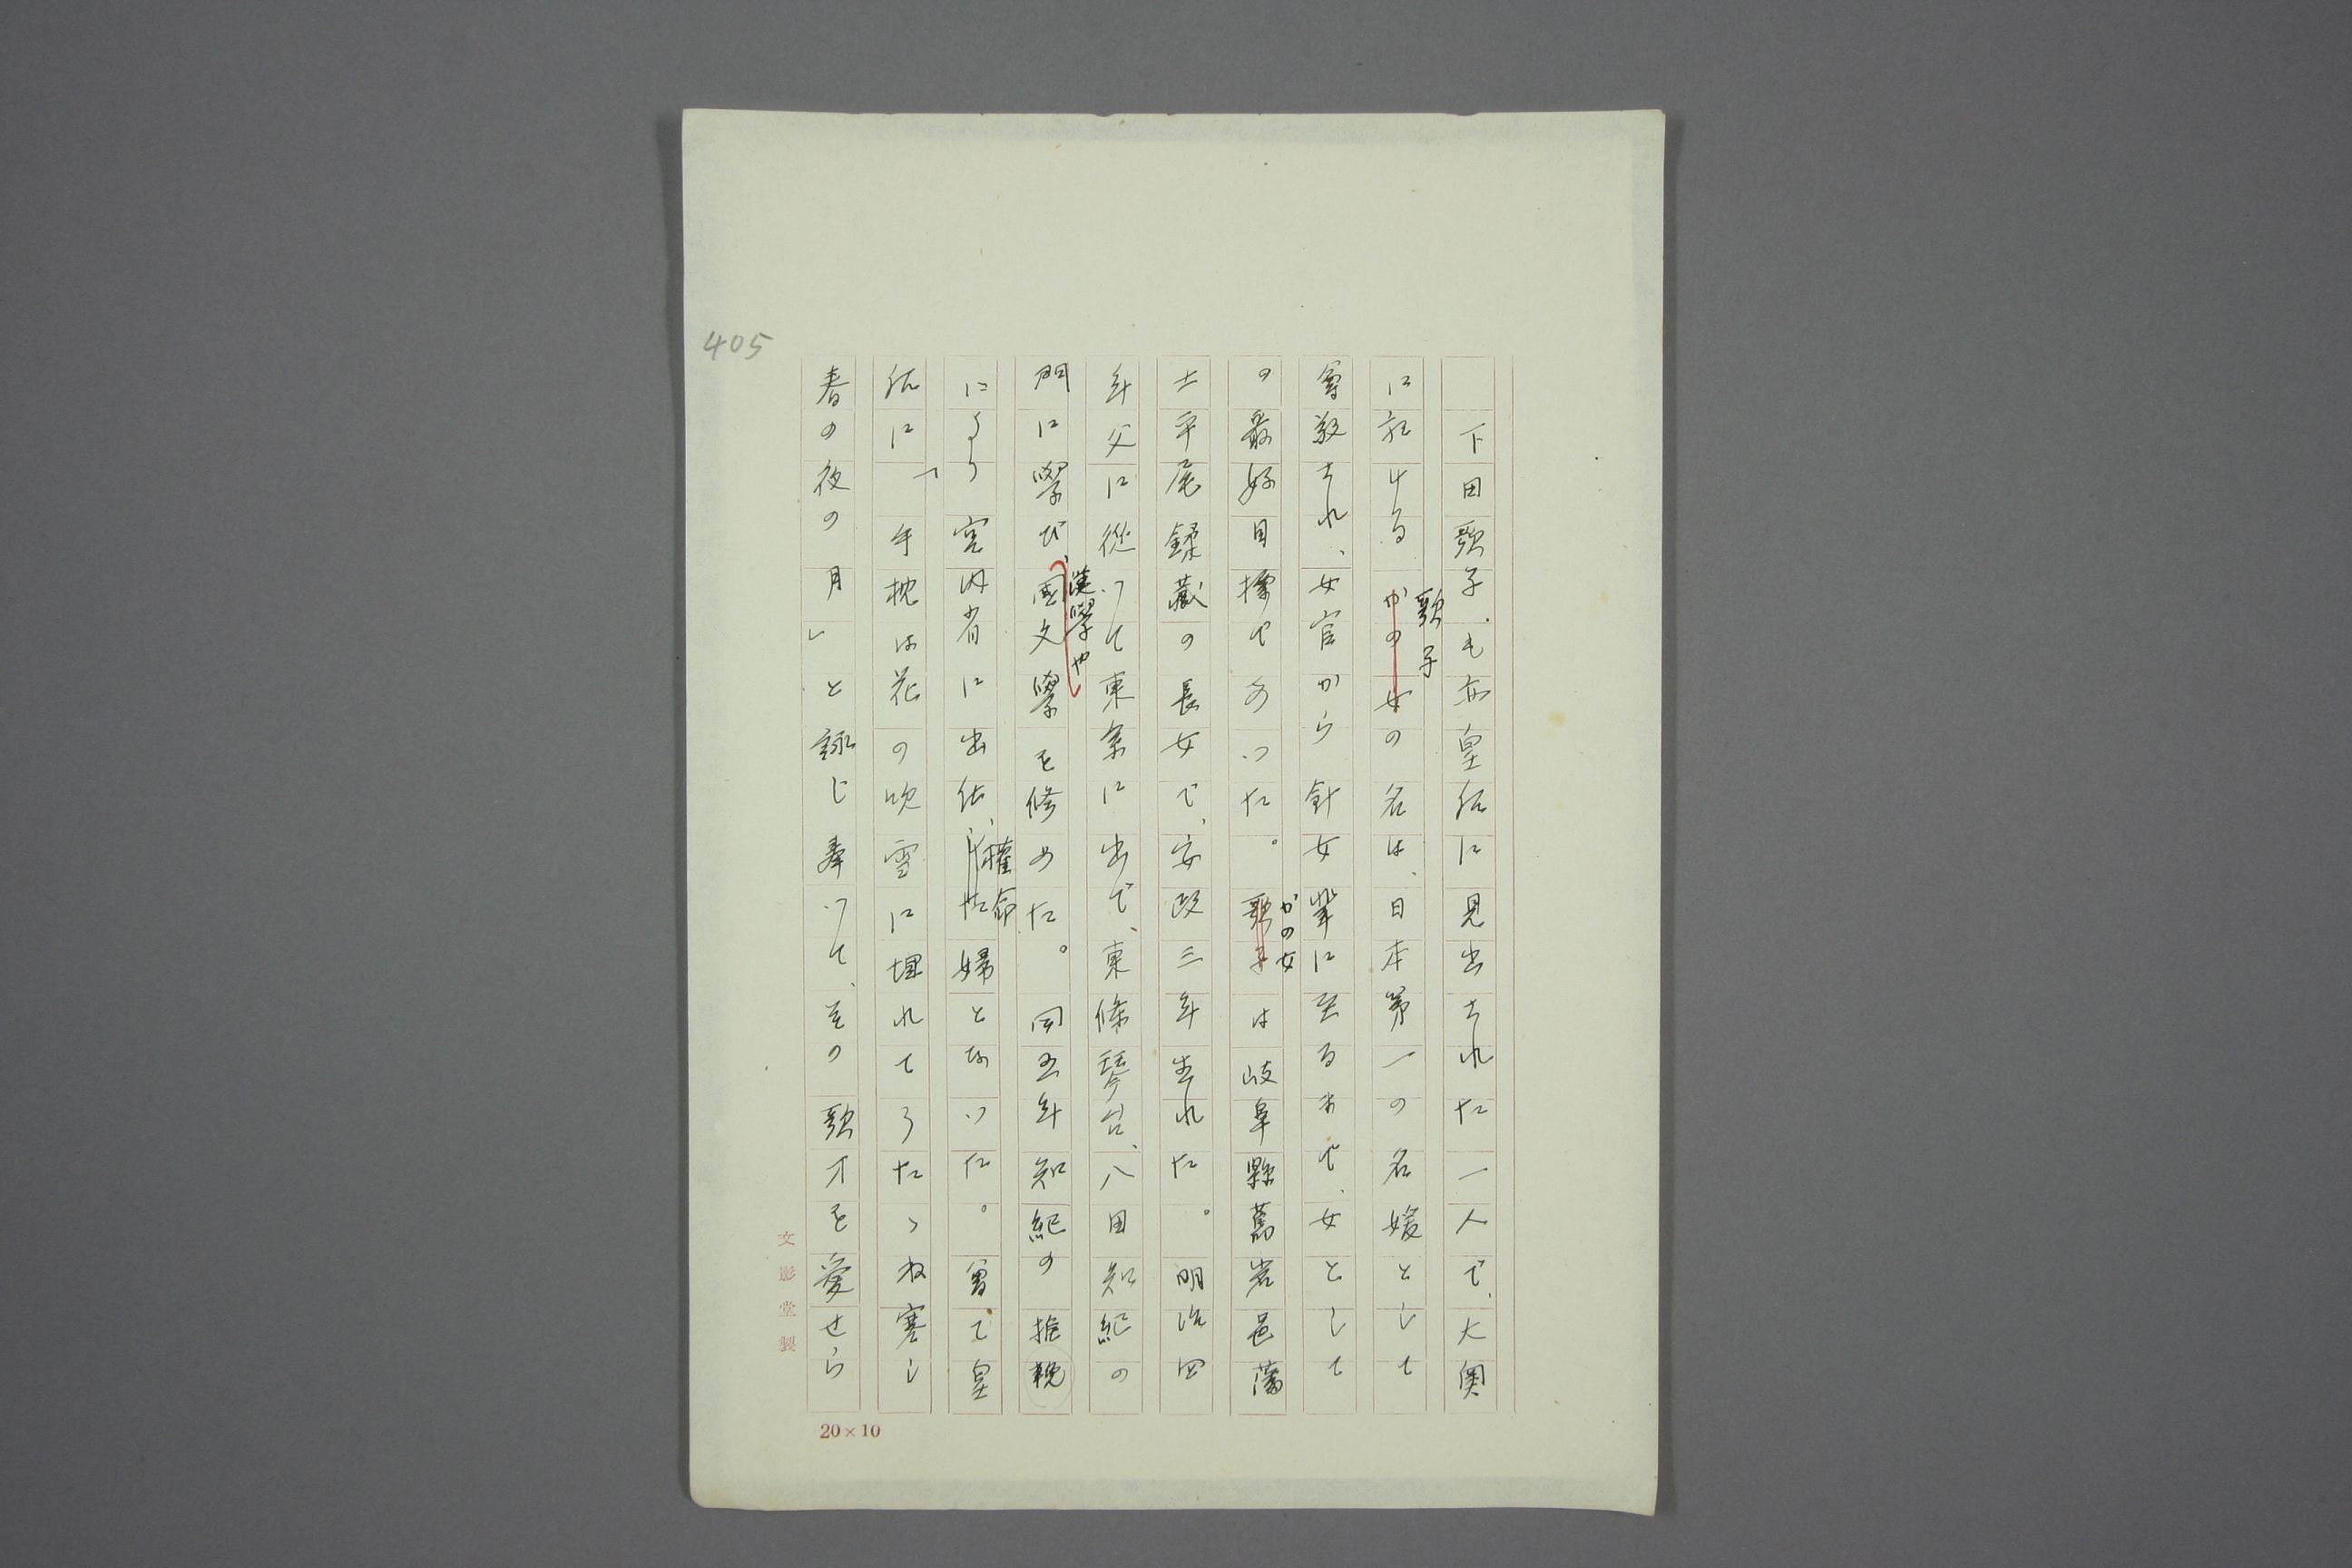 405
下田歌子も亦皇后に見出された一人で、大奥
に於ける歌子の名は、日本第一の名媛として
尊敬され、女官から針女輩に至るまで、女として
の最好目標であつた。かの女は岐阜縣舊岩邑藩
士平尾鍒藏の長女で、安政三年生れた。明治四
年父に從つて東京に出で、東條琴台、八田知紀の
門に學び、漢學や國文學を修めた。同五年知紀の推輓
により宮内省に出仕、權命婦となつた。曾て皇
后に「手枕は花の吹雪に埋れてうたゝね寒し
春の夜の月」と詠じ奉つて、その歌才を愛せら
文影堂製
20×10